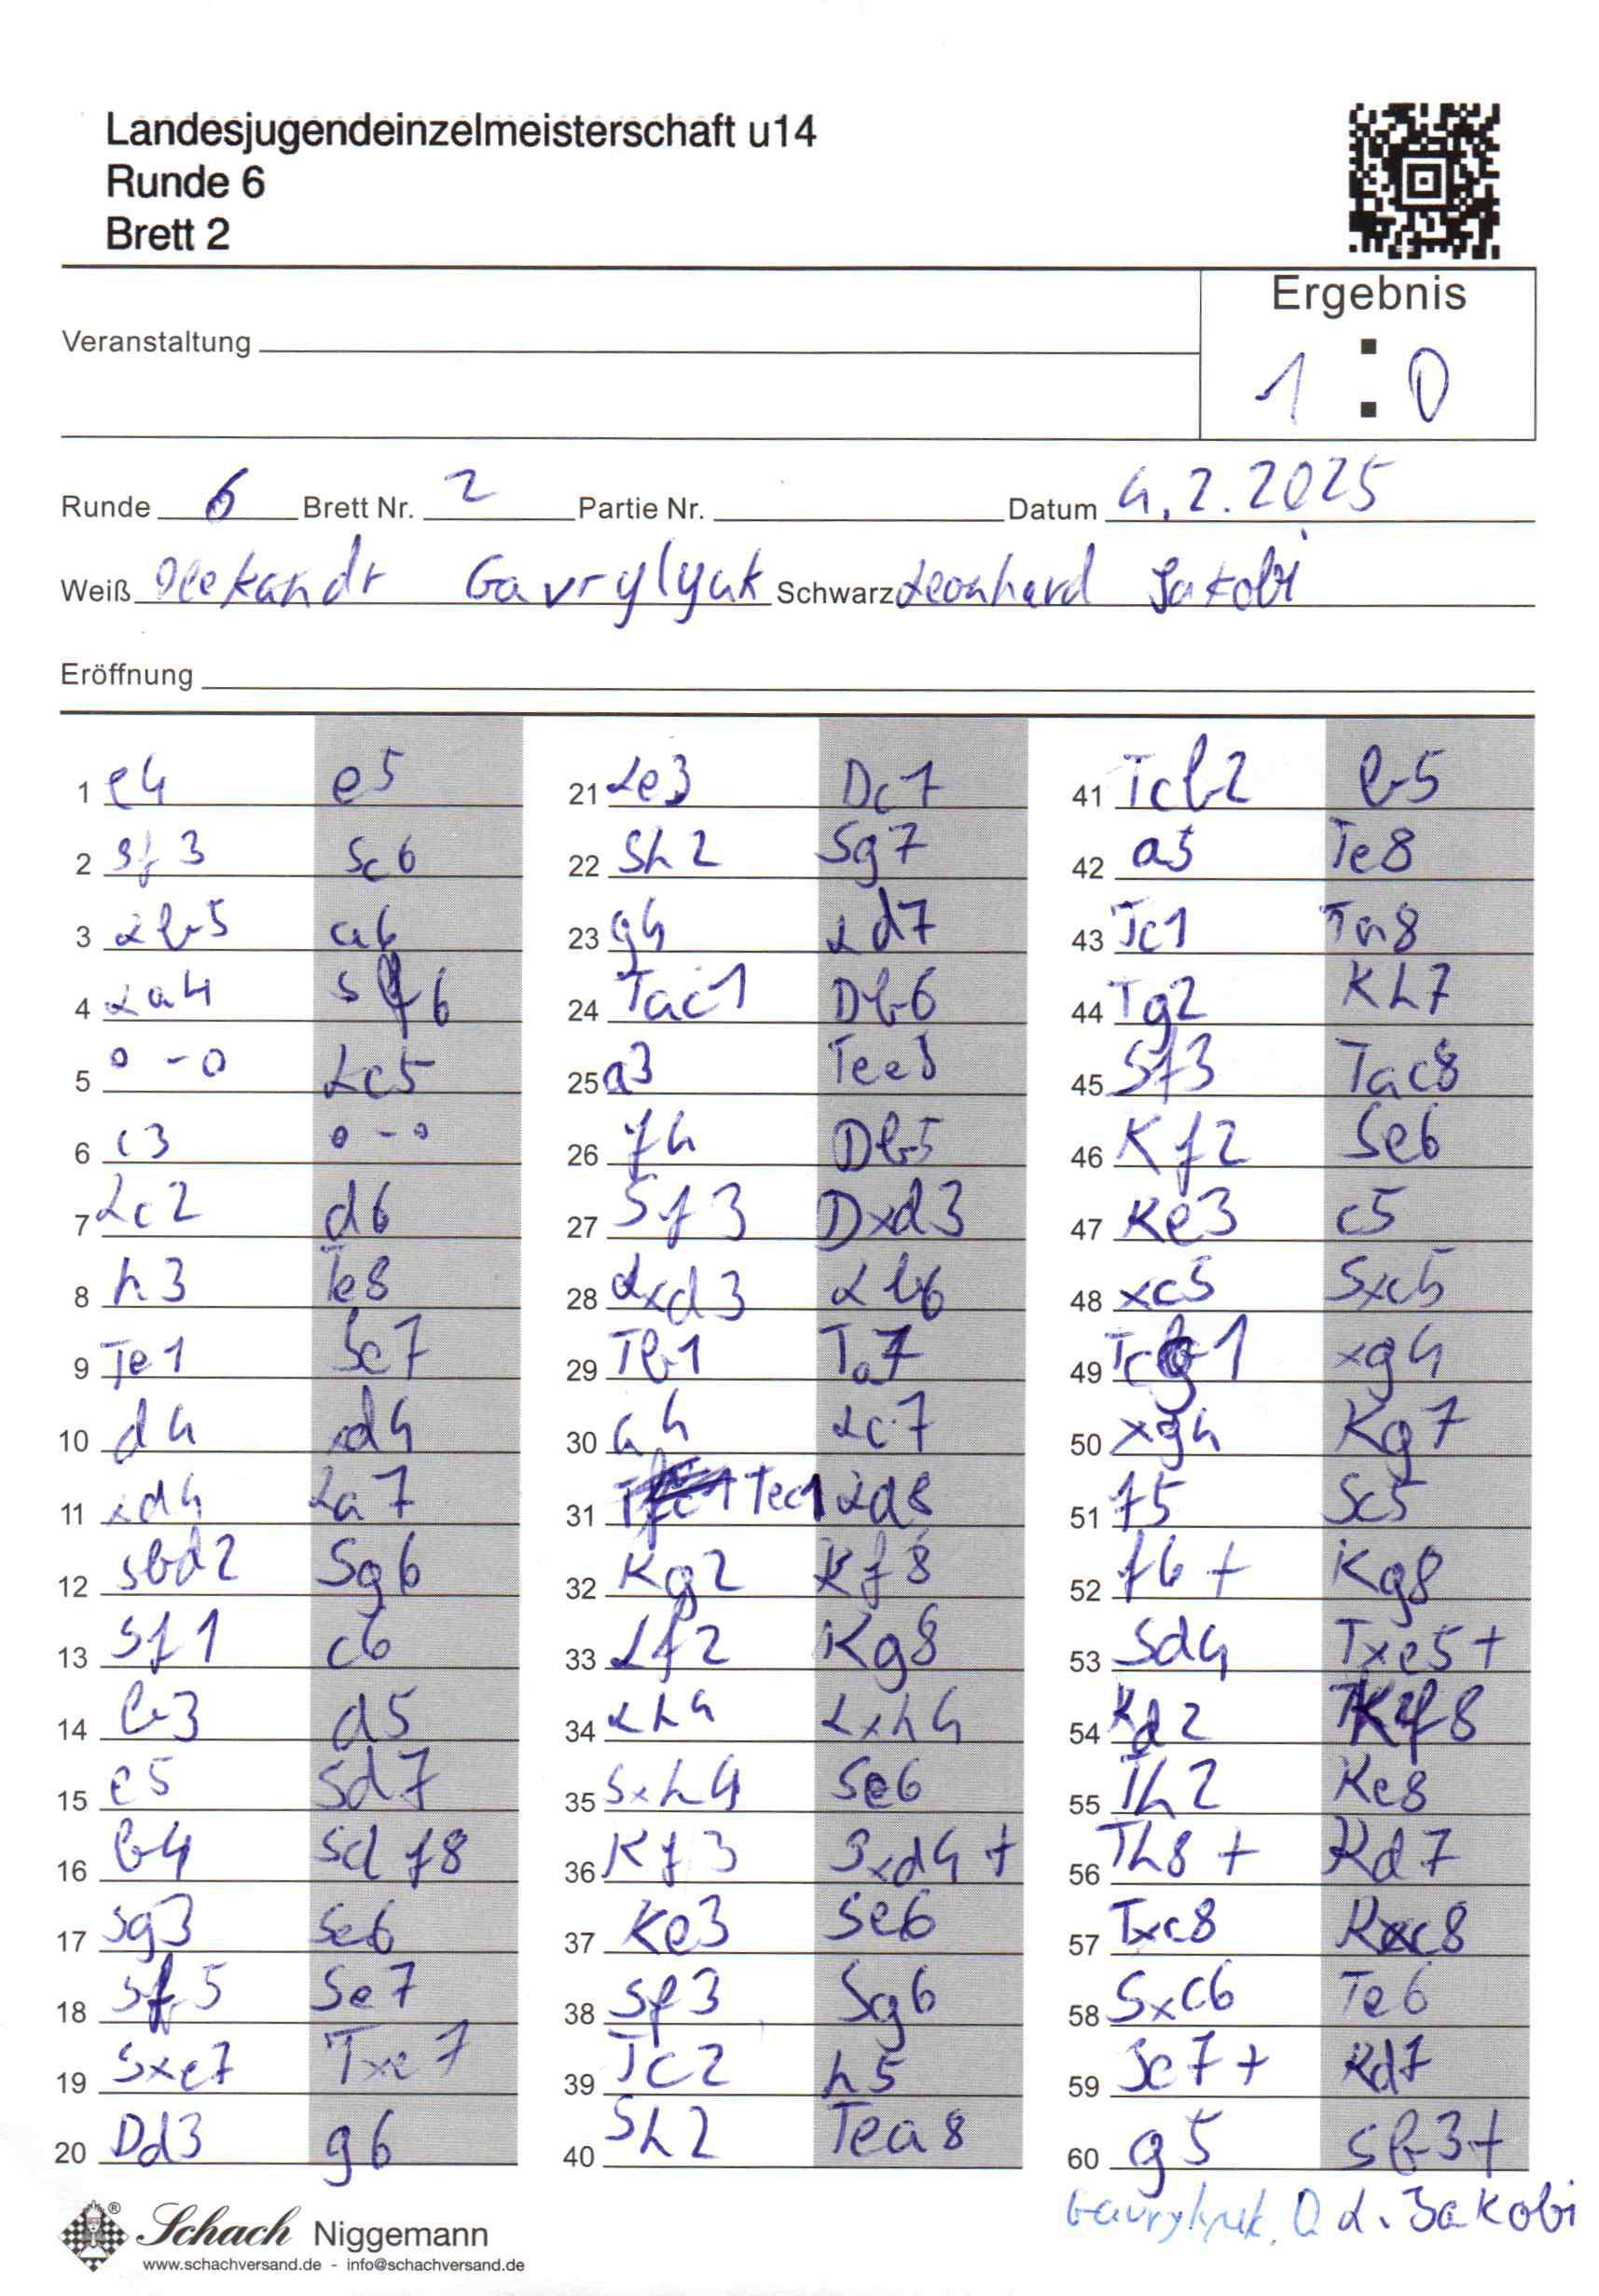 Landesjugendeinzelmeisterschaft u14
Runde 6
Brett 2
Ergebnis
Veranstaltung
1 : 0
Runde 6 Brett Nr. 2 Partie Nr. Datum 4.2.2025
Weiß Olekandr Gavrylyuk Schwarz Leonhard Jakobi
Eröffnung
1 e4 e5
2 Sf3 Sc6
3 Lb5 a6
4 La4 Sf6
5 0-0 Lc5
6 c3 0-0
7 Lc2 d6
8 h3 Te8
9 Te1 Se7
10 d4 xd4
11 xd4 La7
12 Sbd2 Sg6
13 Sf1 c6
14 b3 d5
15 e5 Sd7
16 b4 Sdf8
17 Sg3 Se6
18 Sf5 Se7
19 Sxe7 Txe7
20 Dd3 g6
21 Le3 Dc7
22 Sh2 Sg7
23 g4 Ld7
24 Tac1 Db6
25 a3 Tee8
26 f4 Db5
27 Sf3 Dxd3
28 Lxd3 Lb6
29 Tb1 Ta7
30 a4 Lc7
31 Tec1 Ld8
32 Kg2 Kf8
33 Lf2 Kg8
34 Lh4 Lxh4
35 Sxh4 Se6
36 Kf3 Sxd4+
37 Ke3 Se6
38 Sf3 Sg6
39 Tc2 h5
40 Sh2 Tea8
41 Tcb2 b5
42 a5 Te8
43 Tc1 Ta8
44 Tg2 Kh7
45 Sf3 Tac8
46 Kf2 Se6
47 Ke3 c5
48 xc5 Sxc5
49 Tcg1 xg4
50 xg4 Kg7
51 f5 Sc5
52 f6+ Kg8
53 Sd4 Txe5+
54 Kd2 Kf8
55 Th2 Ke8
56 Th8+ Kd7
57 Txc8 Kxc8
58 Sxc6 Te6
59 Se7+ Kd7
60 g5 Sb3+
Gavrylyuk, O L. Jakobi
® Schach Niggemann
www.schachversand.de - info@schachversand.de